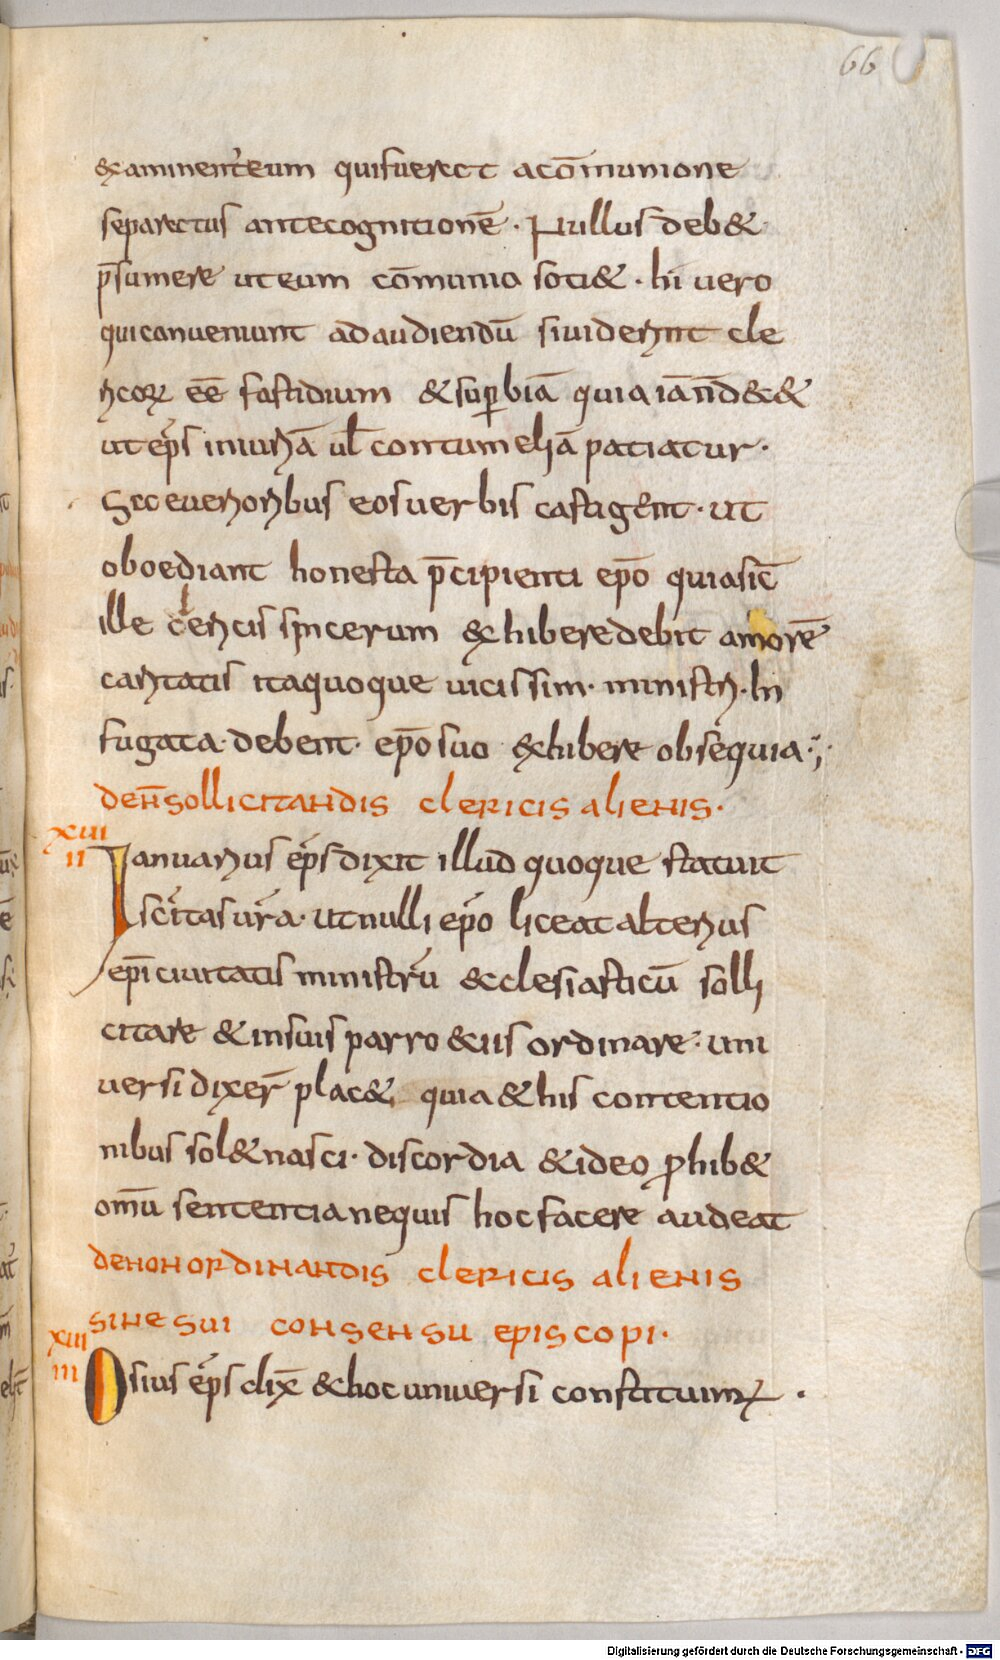 66
&aminent eum qui fuerect acōmunione
separectus ante cognitionē · Nullus deb&
p̄sumere ut eum cōmunio soti& · hii vero
qui conveniunt ad audiendū si viderint cle
ricorꝝ eē fastidium & superbiā quia iā nō dec&
ut ep̄s iniuriā vl contumeliā patiatur ·
Seceverioribus eos verbis castigent · ut
oboediant honesta p̄cipienti ep̄o quia sic̄
ille clericis sincerum exhibere debit amorē
caritatis ita quoque vicissim · ministri · In
fugata · debent · ep̄o suo exhibere obsequia
de n̄ sollicitandis clericis alienis ·
XVIII Ianuarius ep̄s dixit illud quoque statuit
sc̄itas vr̄a · ut nulli ep̄o liceat alterius
ep̄i civitatis ministrū &clesiasticū solli
citare & in suis parro&iis ordinare · uni
versi dixer̄ plac& quia & his contentio
nibus sol& nasci · discordia & ideo prohib&
omn̄ū sententia nequis hoc facere audeat
de non ordinandis clericis alienis
sine sui consensu episcopi ·
XVIIII Osius ep̄s dix̄ & hoc universi constituimꝰ ·
Digitalisierung gefördert durch die Deutsche Forschungsgemeinschaft - DFG